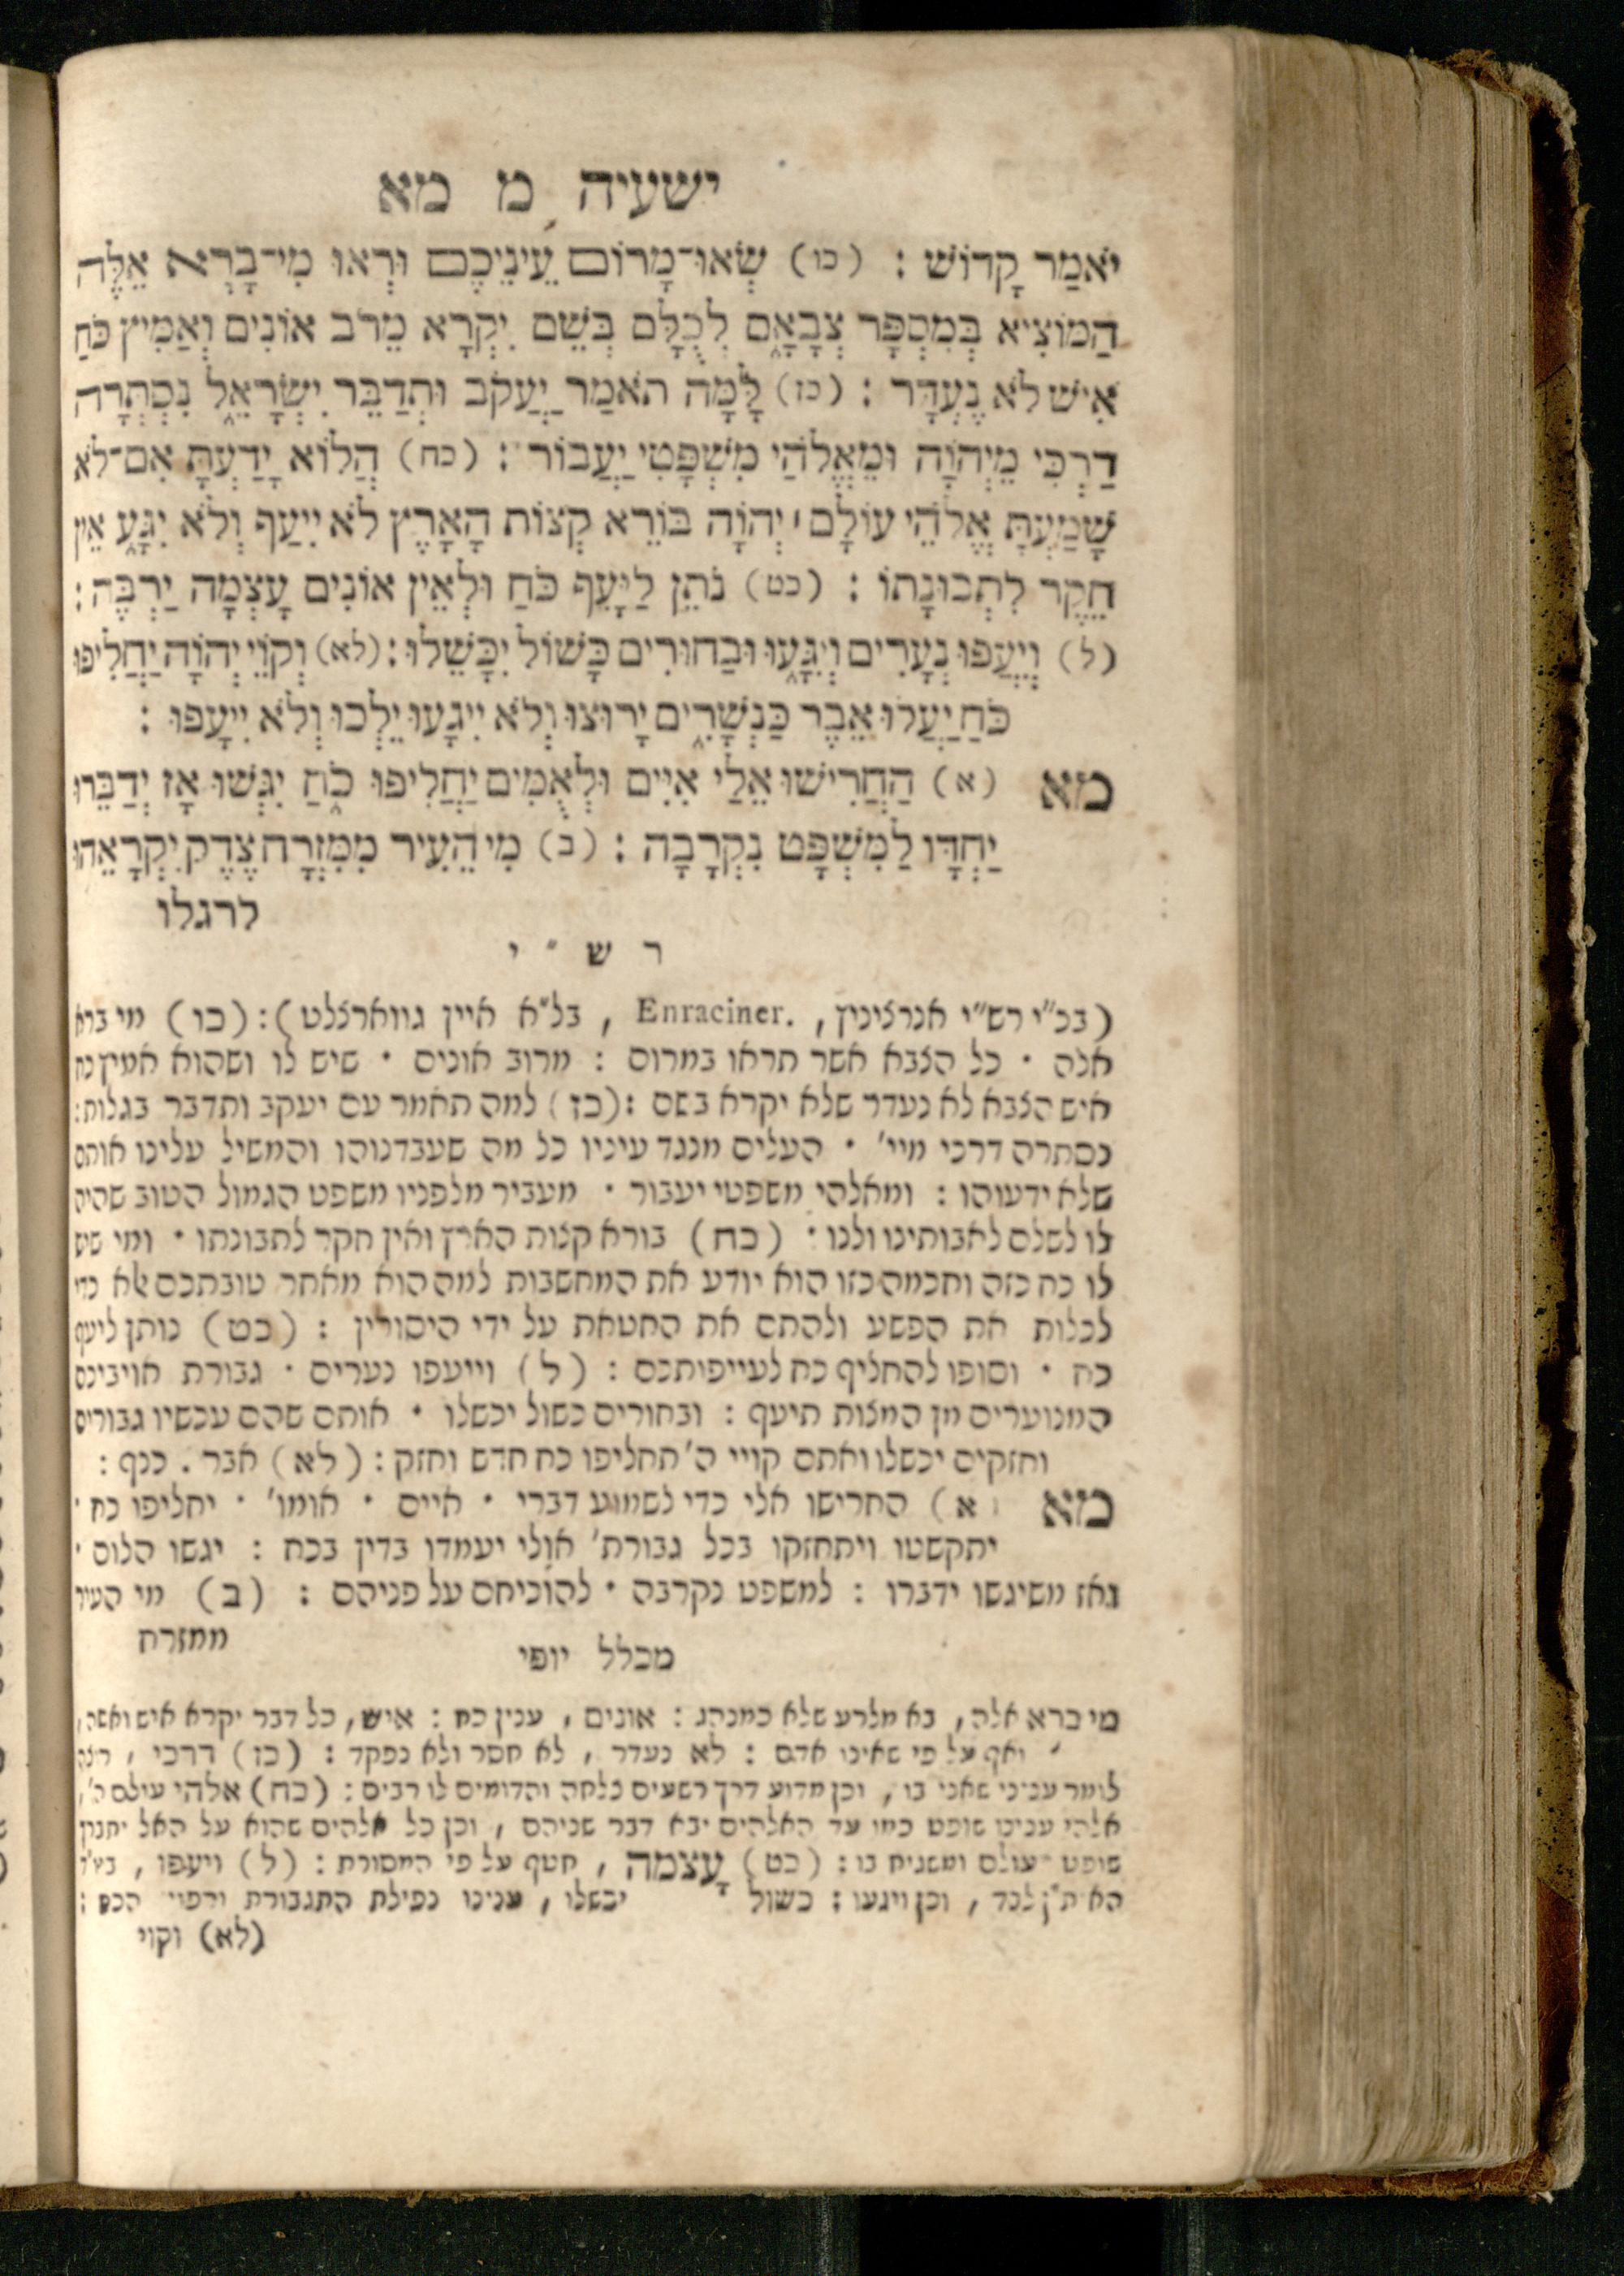 ישעיה מ מא
יֹאמַר קָדוֹשׁ : (כו) שְׂאוּ־מָרוֹם עֵינֵיכֶם וּרְאוּ מִי־בָרָא אֵלֶּה
הַמּוֹצִיא בְמִסְפָּר צְבָאָם לְכֻלָּם בְּשֵׁם יִקְרָא מֵרֹב אוֹנִים וְאַמִּיץ כֹּחַ
אִישׁ לֹא נֶעְדָּר : (כז) לָמָּה תֹאמַר יַעֲקֹב וּתְדַבֵּר יִשְׂרָאֵל נִסְתְּרָה
דַרְכִּי מֵיְהוָֹה וּמֵאֱלֹהַי מִשְׁפָּטִי יַעֲבוֹר : (כח) הֲלוֹא יָדַעְתָּ אִם־לֹא
שָׁמַעְתָּ אֱלֹהֵי עוֹלָם יְהוָֹה בּוֹרֵא קְצוֹת הָאָרֶץ לֹא יִיעַף וְלֹא יִגָּע אֵין
חֵקֶר לִתְבוּנָתוֹ : (כט) נֹתֵן לַיָּעֵף כֹּחַ וּלְאֵין אוֹנִים עָצְמָה יַרְבֶּה :
(ל) וְיִעֲפוּ נְעָרִים וְיִגָּעוּ וּבַחוּרִים כָּשׁוֹל יִכָּשֵׁלוּ : (לא) וְקוֹיֵ יְהוָֹה יַחֲלִיפוּ
כֹחַ יַעֲלוּ אֵבֶר כַּנְּשָׁרִים יָרוּצוּ וְלֹא יִיגָעוּ יֵלְכוּ וְלֹא יִיעָפוּ :
מא (א) הַחֲרִישׁוּ אֵלַי אִיִּים וּלְאֻמִּים יַחֲלִיפוּ כֹחַ יִגְּשׁוּ אָז יְדַבֵּרוּ
יַחְדָּו לַמִּשְׁפָּט נִקְרָבָה : (ב) מִי הֵעִיר מִמִּזְרָח צֶדֶק יִקְרָאֵהוּ
לרגלו
ר ש " י
(בכ"י רש"י אנרציניץ, Enraciner. , בל"א איין גווארצלט) : (כו) מי ברא
אלה · כל הצבא אשר תראו במרום : מרוב אונים · שיש לו ושהוא אמיץ כח
איש הצבא לא נעדר שלא יקרא בשם : (כז) למה תאמר עם יעקב ותדבר בגלות :
נסתרה דרכי מיי' · העלים מנגד עיניו כל מה שעבדנוהו והמשיל עלינו אותם
שלא ידעוהו : ומאלהי משפטי יעבור · מעביר מלפניו משפט הגמול הטוב שהיה
לו לשלם לאבותינו ולנו : (כח) בורא קצות הארץ ואין חקר לתבונתו · ומי שיש
לו כח כזה וחכמה כזו הוא יודע את המחשבות למה הוא מאחר טובתכם אלא כדי
לכלות את הפשע ולהתם את החטאת על ידי היסורין : (כט) נותן ליעף
כח · וסופו להחליף כח לעייפותכם : (ל) וייעפו נערים · גבורת אויביכם
המנוערים מן המצות תיעף : ובחורים כשול יכשלו · אותם שהם עכשיו גבורים
וחזקים יכשלו ואתם קויי ה' תחליפו כח חדש וחזק : (לא) אבר . כנף :
מא (א) החרישו אלי כדי לשמוע דברי · איים · אומו' · יחליפו כח ·
יתקשטו ויתחזקו בכל גבורת' אולי יעמדו בדין בכח : יגשו הלום ·
ואז משיגשו ידברו : למשפט נקרבה · להוכיחם על פניהם : (ב) מי העיר
ממזרח
מכלל יופי
מי ברא אלה, בא מלרע שלא כמנהג : אונים , ענין כח : איש, כל דבר יקרא איש ואשה,
ואף על פי שאינו אדם : לא נעדר , לא חסר ולא נפקד : (כז) דרכי , רצה
לומר עניני שאני בו , וכן מדוע דרך רשעים צלחה והדומים לו רבים : (כח) אלהי עולם ה',
אלהי ענינו שופט כמו עד האלהים יבא דבר שניהם , וכן כל אלהים שהוא על האל יתברך
שופט עולם ומשגיח בו : (כט) עָצמה , חטף על פי המסורת : (ל) ויעפו ,
האית"ן לבד , וכן ויגעו : כשול יכשלו , ענינו נפילת התגבורת ורפוי הכח :
(לא) וקוי